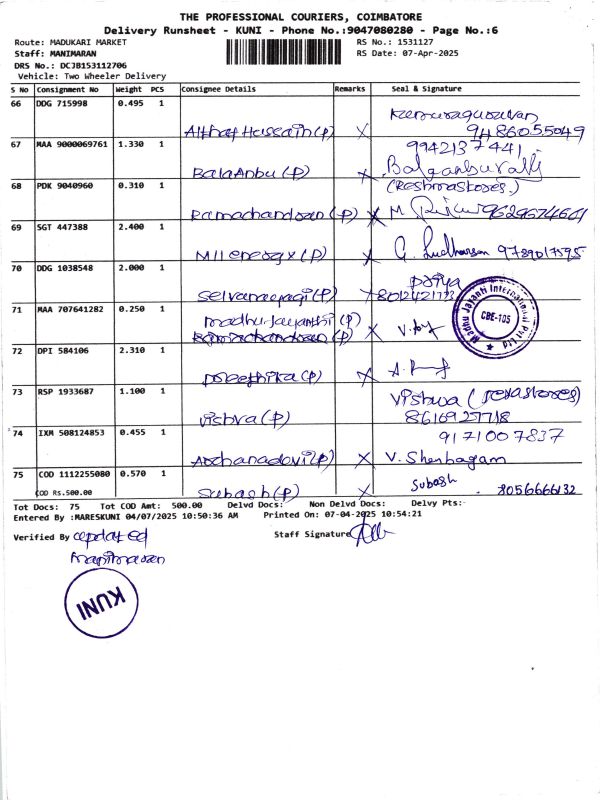 THE PROFESSIONAL COURIERS, COIMBATORE
Delivery Runsheet - KUNI - Phone No.:9047080280 - Page No.:6
Route: MADUKARI MARKET RS No.: 1531127
Staff: MANIMARAN RS Date: 07-Apr-2025
DRS No.: DCJB153112706
Vehicle: Two Wheeler Delivery
S No Consignment No Weight PCS Consignee Details Remarks Seal & Signature
66 DDG 715998 0.495 1
Althaf Hussain (p) X 9486055049
67 MAA 9000069761 1.330 1 9942137441
BalaAnbu (p) X
68 PDK 9040960 0.310 1 (Reshmastores.)
Ramachandran (p) X M. 9629674601
69 SGT 447388 2.400 1
(p) X G. 9789017595
70 DDG 1038548 2.000 1 Priya
(p) X
71 MAA 707641282 0.250 1 Madhu Jayanthi International Pvt Ltd
madhu Jayanthi (p) X CBE-105
72 DPI 584106 2.310 1
preethika (p) X
73 RSP 1933687 1.100 1 Vishwa
vishva (p) 8616927718
74 IXM 508124853 0.455 1 9171007837
Archanadevi (p) X V. Shenbagam
75 COD 1112255080 0.570 1 Subash
COD Rs.500.00 Subash (p) X 8056666132
Tot Docs: 75 Tot COD Amt: 500.00 Delvd Docs: Non Delvd Docs: Delvy Pts:-
Entered By :MARESKUNI 04/07/2025 10:50:36 AM Printed On: 07-04-2025 10:54:21
Verified By updated Staff Signature
Manimaran
KUNI